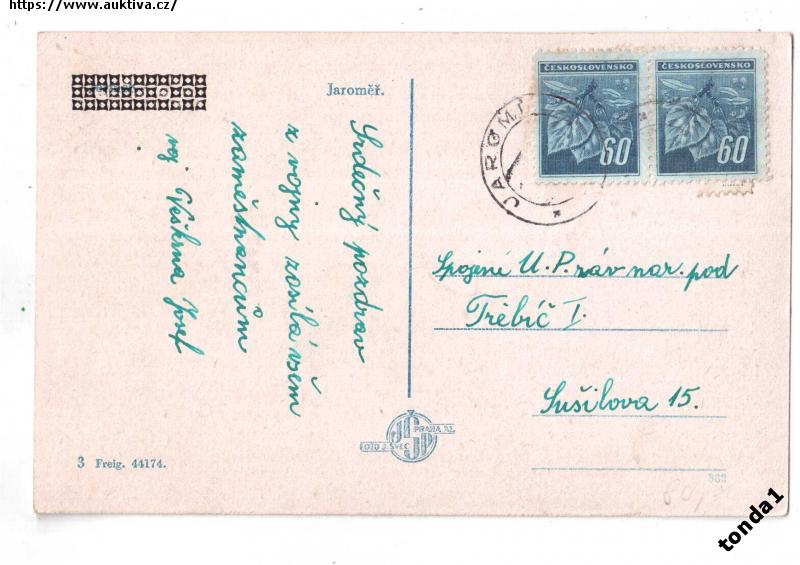 https://www.auktiva.cz/
Jaroměř.
Srdečný pozdrav
z vojny zasílá všem
zaměstnancům
voj. Veškrna Josef
ČESKOSLOVENSKO
60
ČESKOSLOVENSKO
60
JAROMĚ
Spojené U.P.záv nar. pod
Třebíč I.
Sušilova 15.
FOTO J. ŠVEC
PRAHA
3 Freig. 44174.
tonda1